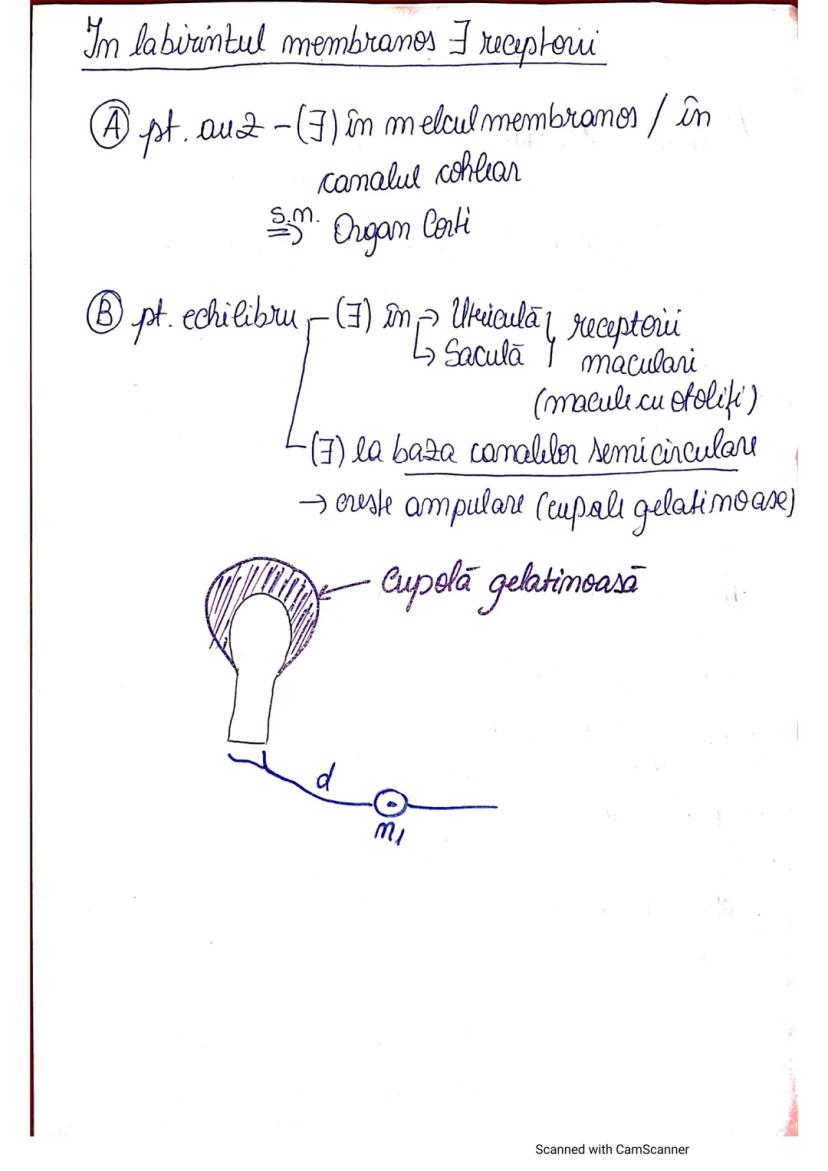 În labirintul membranos ∃ receptorii
Ⓐ pt. auz - (∃) în melcul membranos / în
canalul cohlear
s.m.
=> Organ Corti
Ⓑ pt. echilibru - (∃) în → Utriculă } receptorii
↳ Saculă } maculari
(macule cu otoliți)
(∃) la baza canalelor semicirculare
→ creste ampulare (cupole gelatinoase)
Cupolă gelatinoasă
d
m1
Scanned with CamScanner